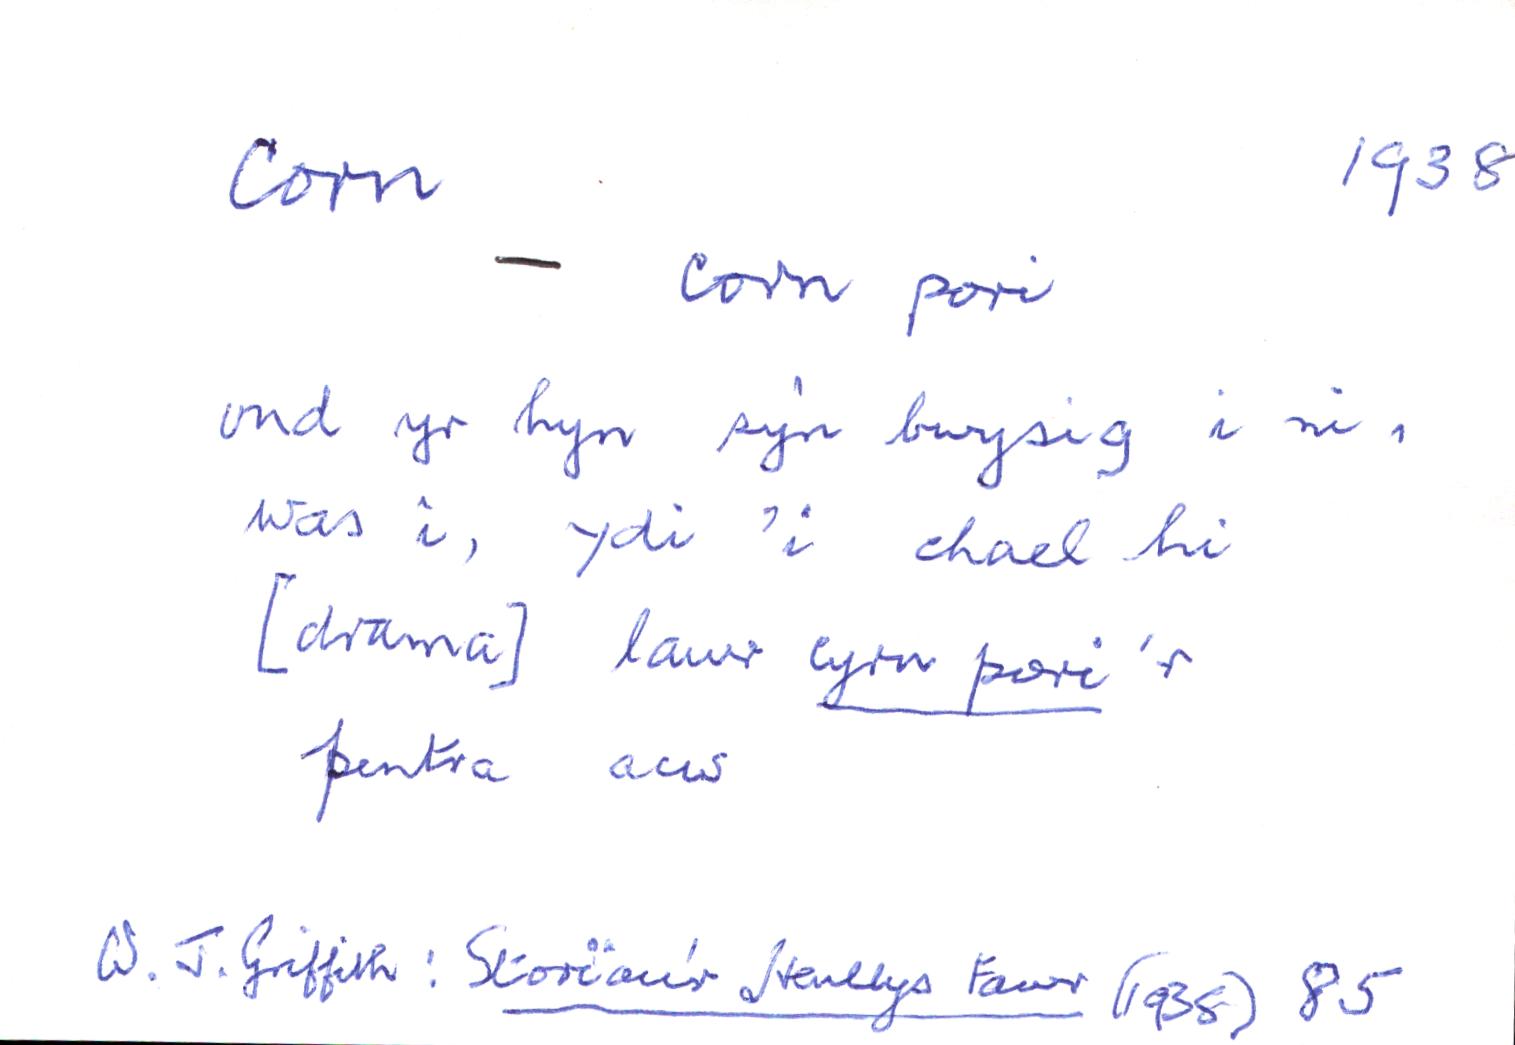 Corn 1938
— Corn pori
ond yr hyn sy'n bwysig i ni,
was i, ydi 'i chael hi
[drama] lawr cyrn pori'r
pentra acw
W. J. Griffith: Storïau'r Henllys Fawr (1938) 85